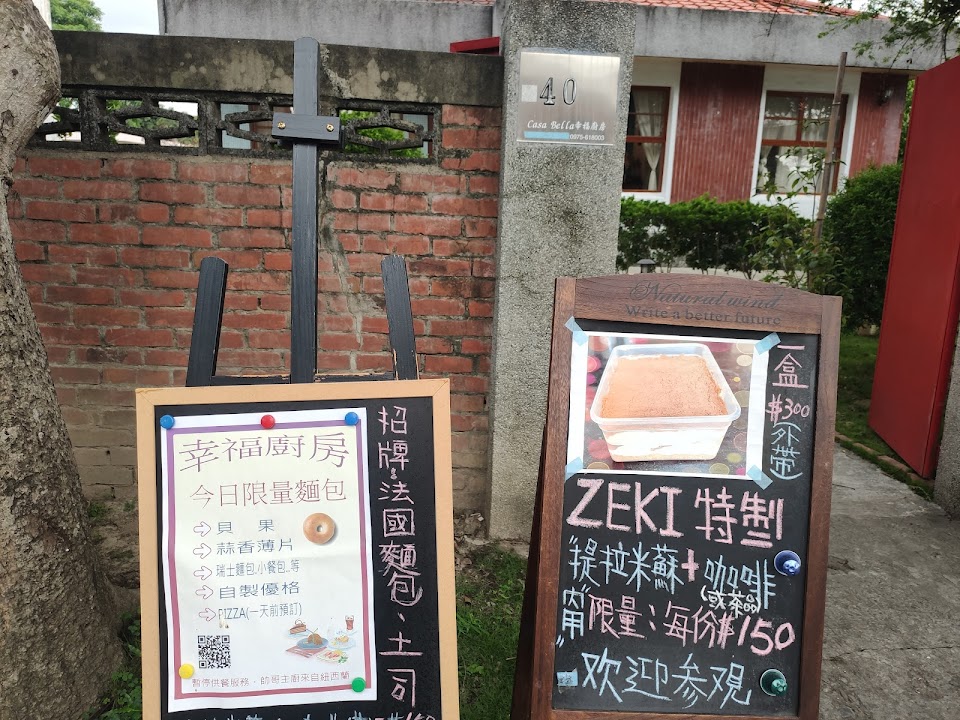 40
Casa Bella幸福廚房
0975-618003
幸福廚房
今日限量麵包
貝 果
蒜香薄片
瑞士麵包.小餐包...等
自製優格
PIZZA(一天前預訂)
暫停供餐服務,帥哥主廚來自紐西蘭
招牌:法國麵包、土司
Natural wind
Write a better future
一盒
$300
(外帶)
ZEKI 特製
"提拉米蘇+咖啡
(或茶品)
"內用"限量:每份$150
欢迎参观